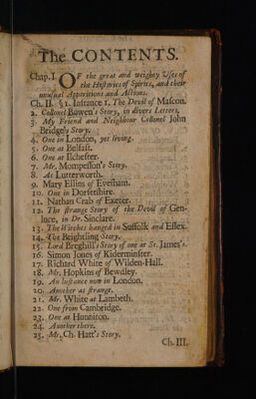 The CONTENTS.
Chap. I. OF the great and weighty Uses of
the Histories of Spirits, and their
unusual Apparitions and Actions.
Ch. II. § 1. Instance 1. The Devil of Mascon.
2. Collonel Bowen's Story, in divers Letters.
3. My Friend and Neighbour Collonel John
Bridge's Story.
4. One in London, yet living.
5. One at Belfast.
6. One at Ilchester.
7. Mr. Mompesson's Story.
8. At Lutterworth.
9. Mary Ellins of Evesham.
10. One in Dorsetshire.
11. Nathan Crab of Exeter.
12. The strange Story of the Devil of Gen-
luce, in Dr. Sinclare.
13. The Witches hanged in Suffolk and Essex.
14. The Brightling Story.
15. Lord Broghill's Story of one at St. James's.
16. Simon Jones of Kiderminster.
17. Richard White of Wilden-Hall.
18. Mr. Hopkins of Bewdley.
19. An Instance now in London.
20. Another as strange.
21. Mr. White at Lambeth.
22. One from Cambridge.
23. One at Honniton.
24. Another there.
25. Mr. Ch. Hatt's Story.
Ch. III.